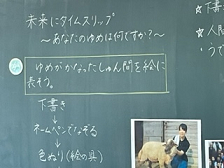 未来にタイムスリップ
～あなたのゆめは何ですか？～
ゆめがかなったしゅん間を絵に
表そう。
下書き
↓
ネームペンでなぞる
↓
色ぬり(絵の具)
★
★人民
うで